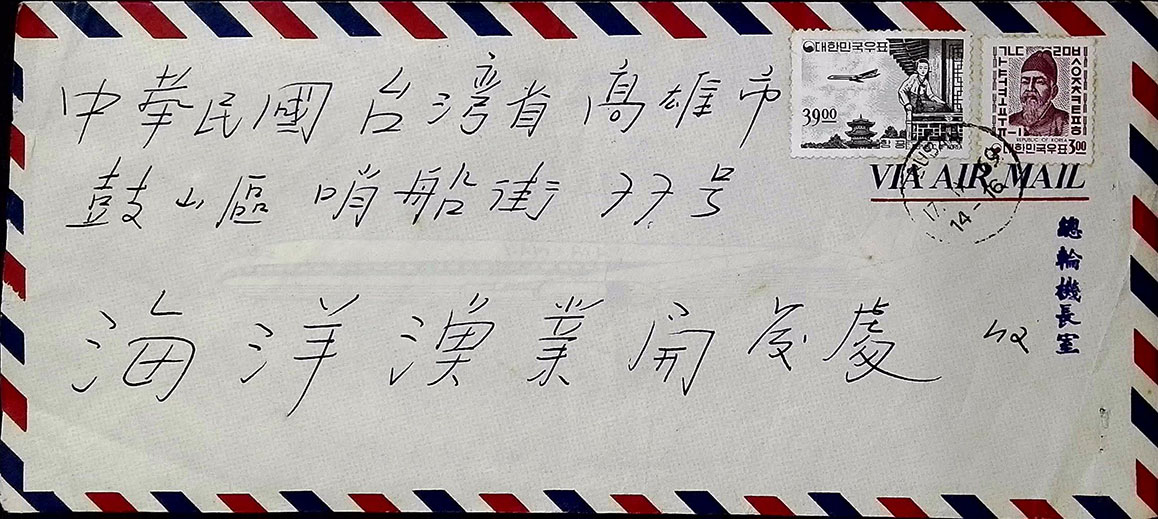 中華民國 台湾省 高雄市
鼓山區 哨船街 77号
海洋漁業開发處 收
대한민국우표
39.00
ㄱㄴㄷㄹㅁㅂ
ㅅㅇㅈㅊㅋㅌㅍㅎ
ㅏㅑㅓㅕㅗㅛㅜㅠㅡㅣ
REPUBLIC OF KOREA
대한민국우표 3.00
VIA AIR MAIL
14-16
總輪機長室